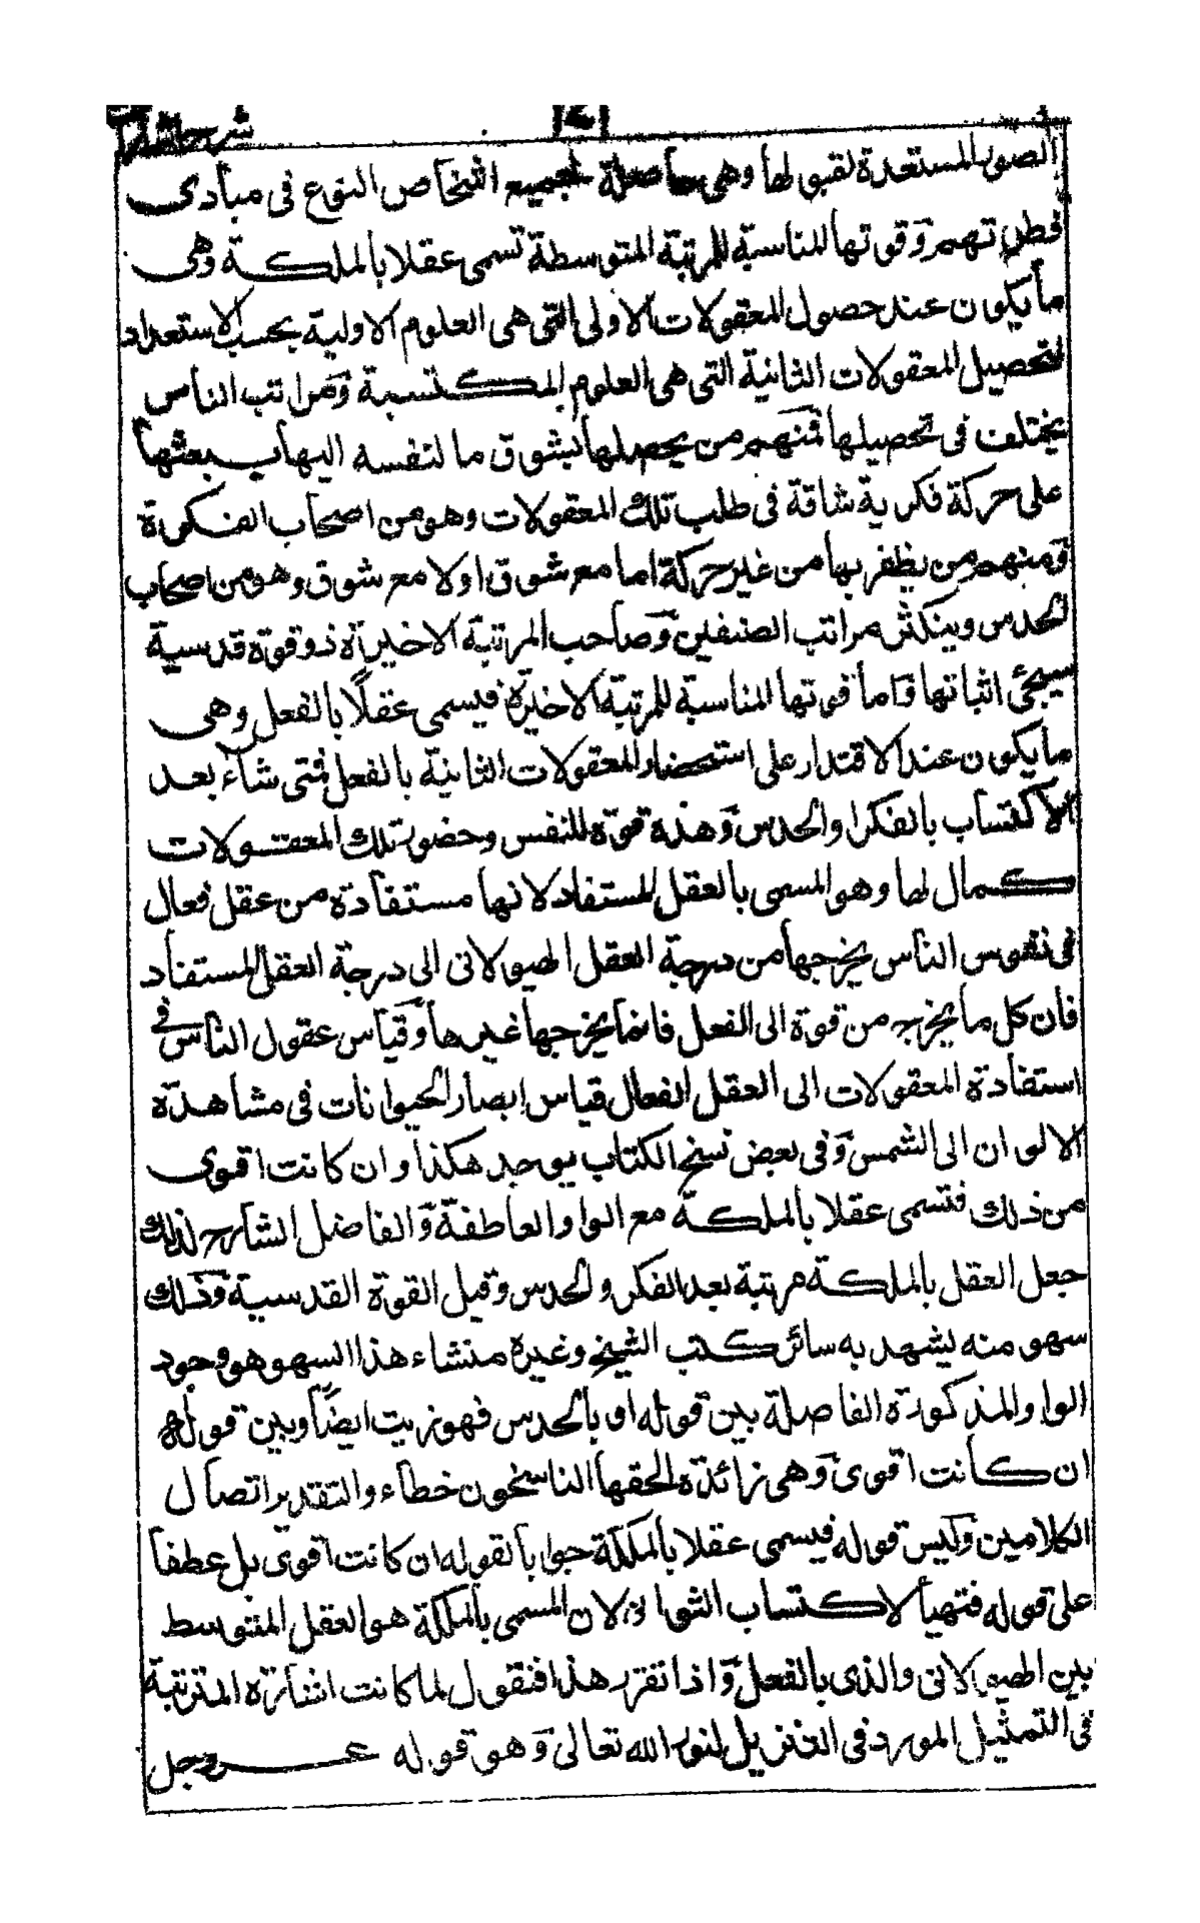 الصور المستعدة لقبولها وهى حاصلة لجميع اشخاص النوع فى مبادى
فطرتهم وقوتها المناسبة للمرتبة المتوسطة تسمى عقلا بالملكة وهى
ما يكون عند حصول المعقولات الاولى التى هى العلوم الاولية بحسب الاستعداد
لتحصيل المعقولات الثانية التى هى العلوم المكتسبة ومراتب الناس
يختلف فى تحصيلها فمنهم من يحصلها بشوق ما لنفسه اليها يبعثها
على حركة فكرية شاقة فى طلب تلك المعقولات وهو من اصحاب الفكرة
ومنهم من يظفر بها من غير حركة اما مع شوق او لا مع شوق وهو من اصحاب
الحدس ويتكثر مراتب الصنفين وصاحب المرتبة الاخيرة ذو قوة قدسية
سيجئ اثباتها واما قوتها المناسبة للمرتبة الاخيرة فيسمى عقلًا بالفعل وهى
ما يكون عند الاقتدار على استحضار المعقولات الثانية بالفعل متى شاء بعد
الاكتساب بالفكر او الحدس وهذه قوة للنفس وحضور تلك المعقولات
كمال لها وهو المسمى بالعقل المستفاد لانها مستفادة من عقل فعال
فى نفوس الناس يخرجها من درجة العقل الهيولانى الى درجة العقل المستفاد
فان كل ما يخرج من قوة الى الفعل فانما يخرجها غيرها وقياس عقول الناس فى
استفادة المعقولات الى العقل الفعال قياس ابصار الحيوانات فى مشاهدة
الالوان الى الشمس وفى بعض نسخ الكتاب يوجد هكذا وان كانت اقوى
من ذلك فتسمى عقلا بالملكة مع الواو العاطفة والفاضل الشارح لذلك
جعل العقل بالملكة مرتبة بعد الفكر والحدس وقبل القوة القدسية وذلك
سهو منه يشهد به سائر كتب الشيخ وغيره منشاء هذا السهو هو وجود
الواو المذكورة الفاصلة بين قوله او بالحدس فهو زيت ايضًا وبين قوله
ان كانت اقوى وهى زائدة الحقها الناسخون خطاء والتقدير اتصال
الكلامين وليس قوله فيسمى عقلا بالملكة جوابا لقوله ان كانت اقوى بل عطفا
على قوله فتهيأ لاكتساب الثوانى لان المسمى بالملكة هو العقل المتوسط
بين الهيولانى والذى بالفعل واذا تقرر هذا فنقول لما كانت اشارة المترتبة
فى التمثيل المورد فى التنزيل لنور الله تعالى وهو قوله عز وجل